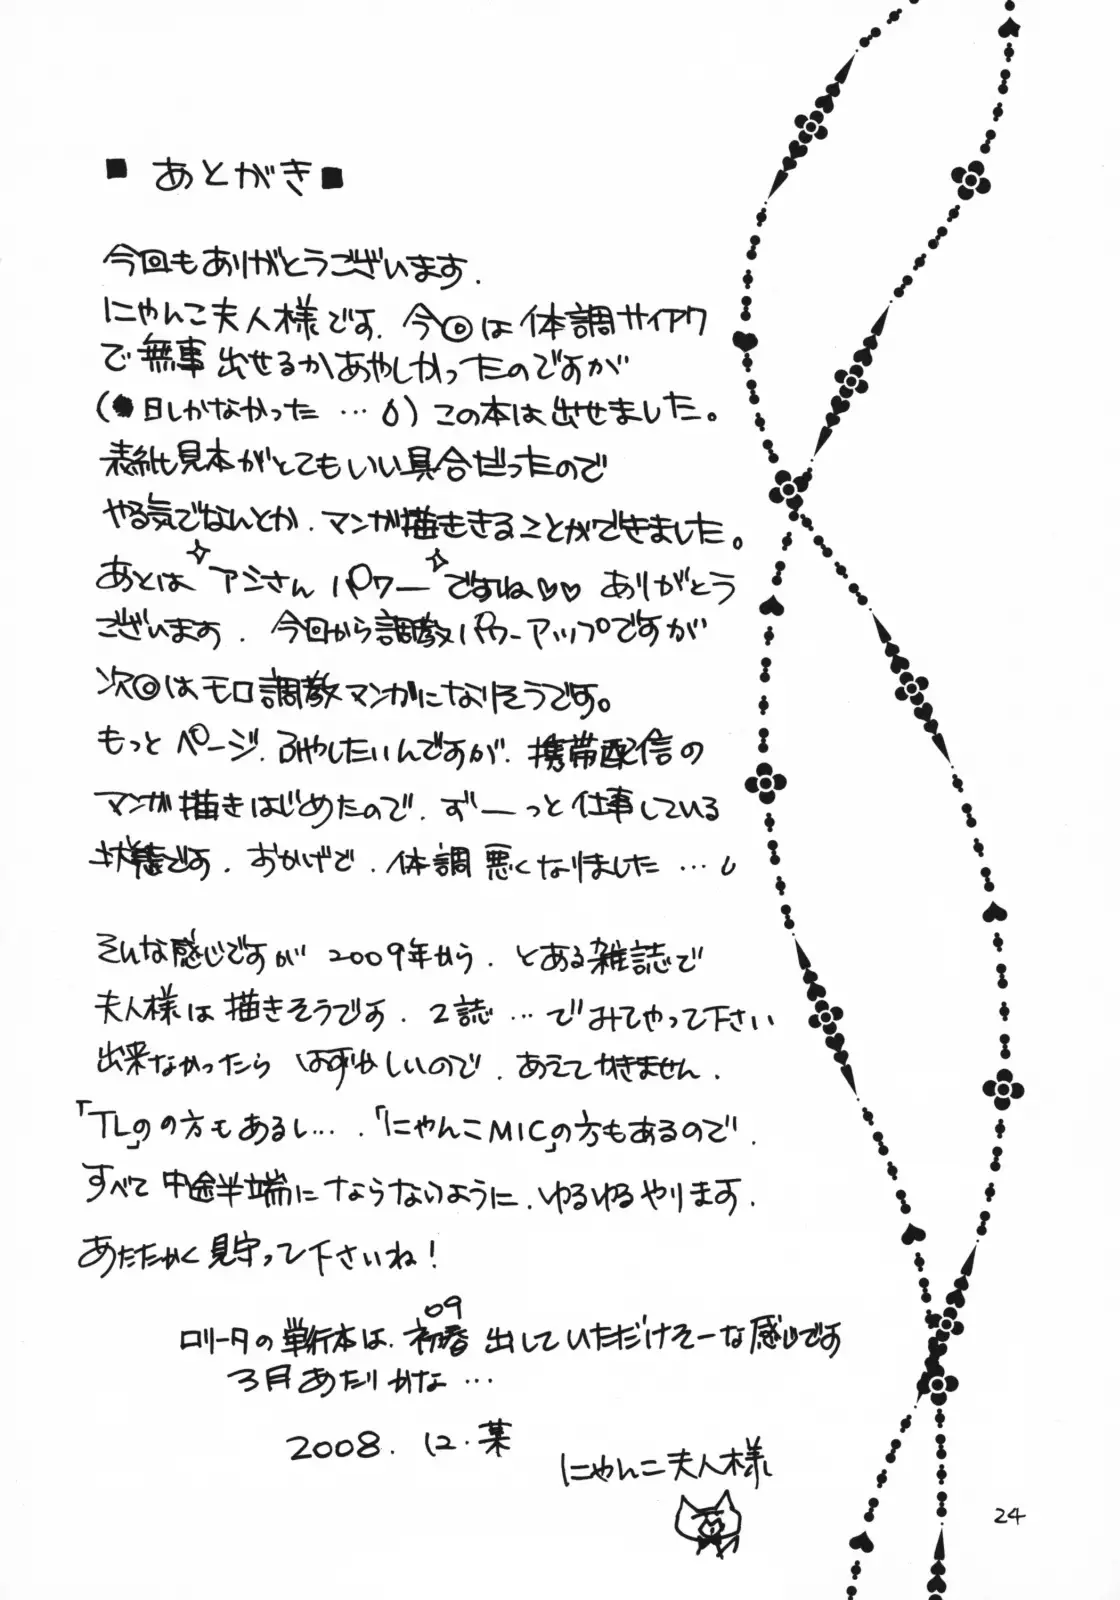 ■ あとがき ■
今回もありがとうございます.
にゃんこ夫人様です. 今回は体調サイアク
で無事出せるかあやしかったのですが
(●日しかなかった …) この本は出せました。
表紙見本がとてもいい具合だったので
やる気でなんとか. マンガ描ききることができました。
あとは アシさん パワー ですね♡♡ ありがとう
ございます. 今回から調教パワーアップですが
次回はモロ調教マンガになりそうです。
もっと ページ. ふやしたいんですが. 携帯配信の
マンガ描きはじめたので. ずーっと仕事している
状態です. おかげで. 体調悪くなりました …
そんな感じですが 2009年から. とある雑誌で
夫人様は描きそうです. 2誌 … でみてやって下さい
出来なかったら はずかしいので. あえてかきません.
「TLの」の方もあるし…. 「にゃんこMIC」の方もあるので.
すべて中途半端にならないように. ゆるゆるやります.
あたたかく見守って下さいね!
09
ロリータの単行本は. 初春 出していただけそーな感じです
3月あたりかな…
2008. 12. 葉
にゃんこ夫人様
24